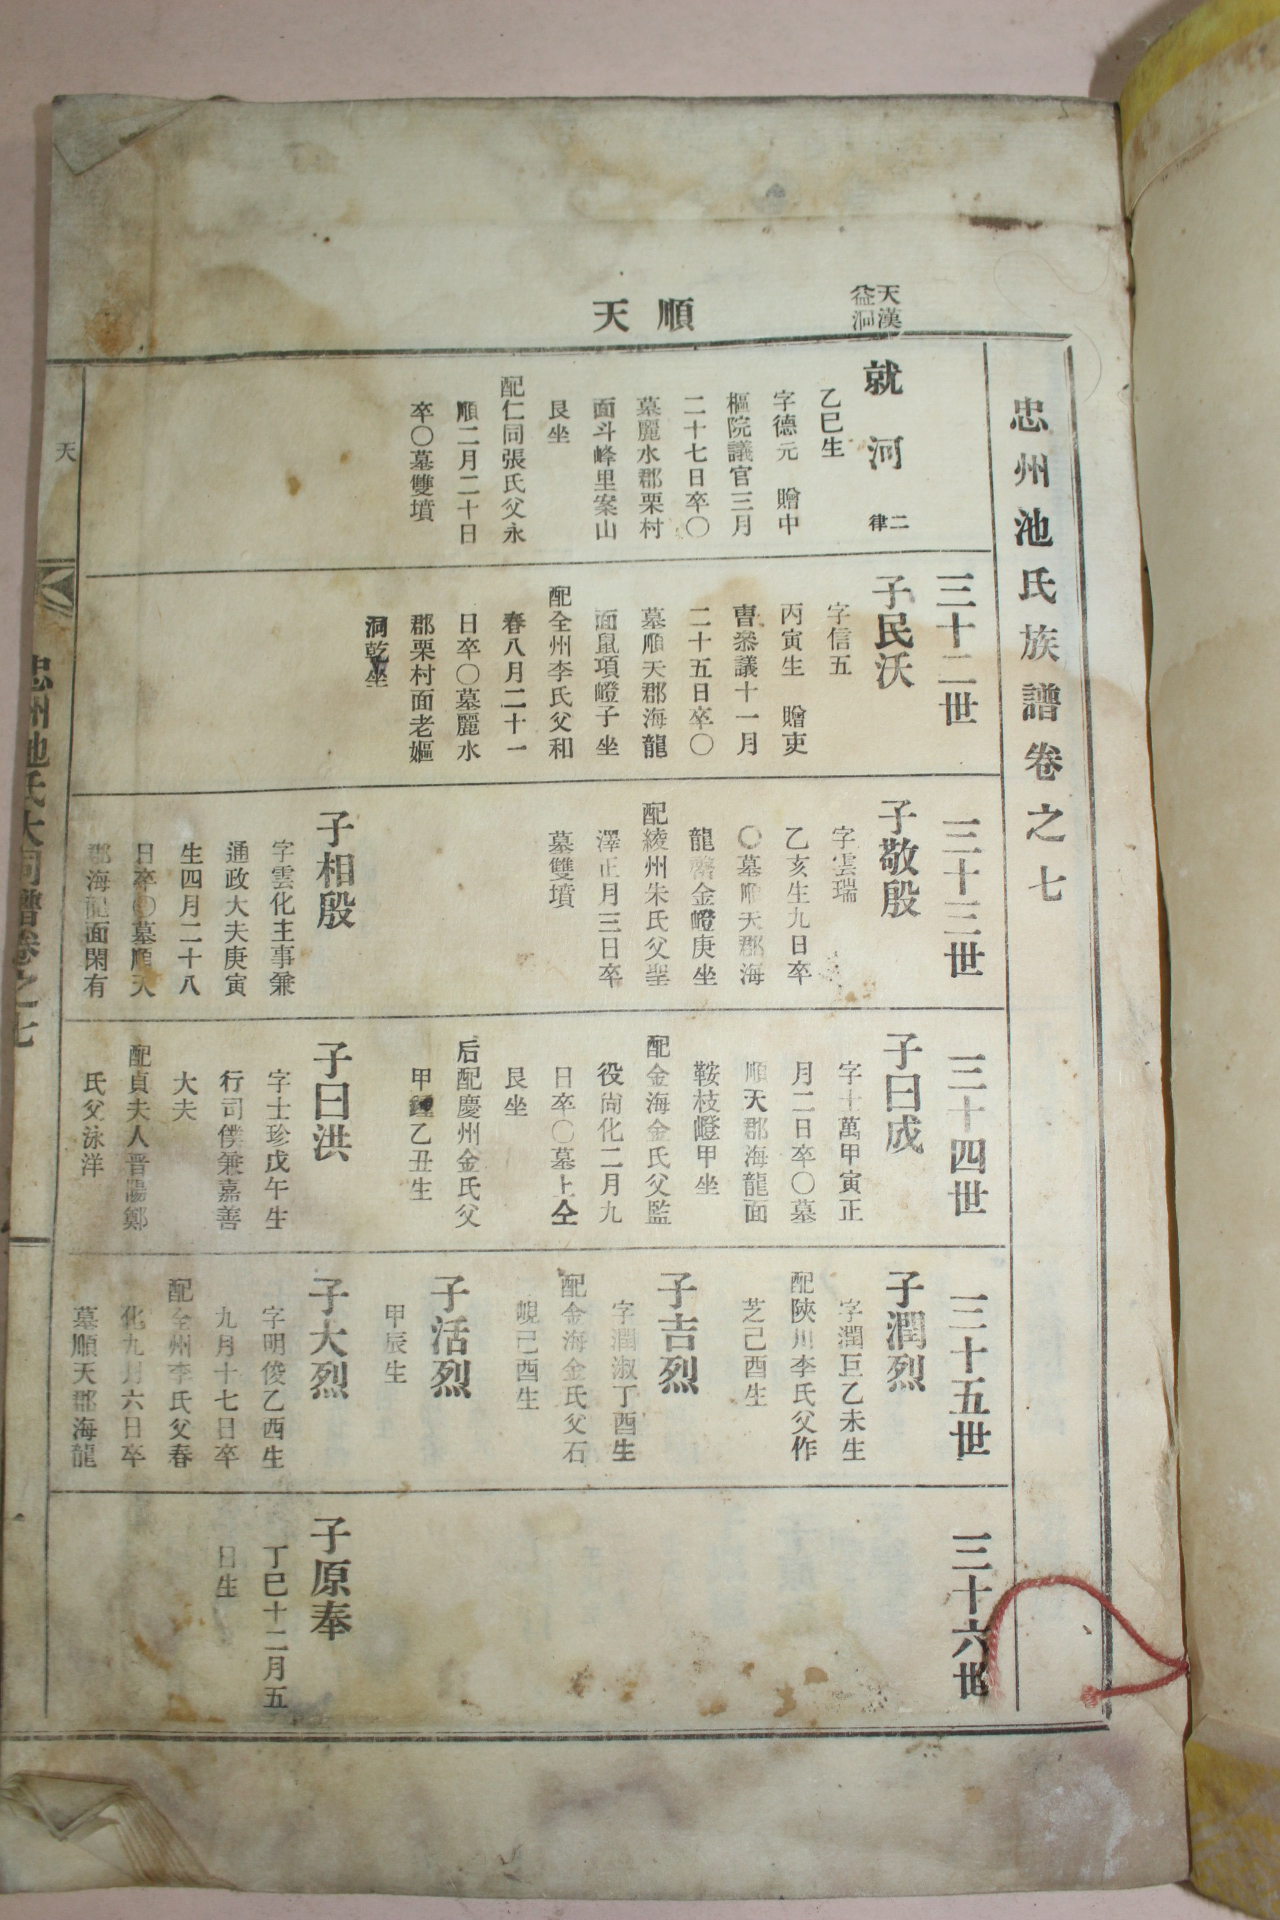 忠州池氏族譜卷之七
天漢
益洞
順天
就河
二
律
乙巳生
字德元 贈中
樞院議官三月
二十七日卒〇
墓麗水郡栗村
面斗峰里案山
艮坐
配仁同張氏父永
順二月二十日
卒〇墓雙墳
三十二世
子民沃
字信五
丙寅生 贈吏
曹參議十一月
二十五日卒〇
墓順天郡海龍
面鼠項嶝子坐
配全州李氏父和
春八月二十一
日卒〇墓麗水
郡栗村面老嫗
洞乾坐
三十三世
子敬殷
字雲瑞
乙亥生九日卒
〇墓順天郡海
龍 金嶝庚坐
配綾州朱氏父聖
澤正月三日卒
墓雙墳
子相殷
字雲化主事兼
通政大夫庚寅
生四月二十八
日卒〇墓順天
郡海龍面閑有
三十四世
子曰成
字士萬甲寅正
月二日卒〇墓
順天郡海龍面
鞍枝嶝甲坐
配金海金氏父監
役尙化二月九
日卒〇墓上仝
艮坐
后配慶州金氏父
甲鍾乙丑生
子曰洪
字士珍戊午生
行司僕兼嘉善
大夫
配貞夫人晋陽鄭
氏父泳洋
三十五世
子潤烈
字潤巨乙未生
配陜川李氏父作
芝己酉生
子吉烈
字潤淑丁酉生
配金海金氏父石
峴己酉生
子活烈
甲辰生
子大烈
字明俊乙酉生
九月十七日卒
配全州李氏父春
化九月六日卒
墓順天郡海龍
三十六世
子原奉
丁巳十二月五
日生
天
忠州池氏大同譜卷之七
一